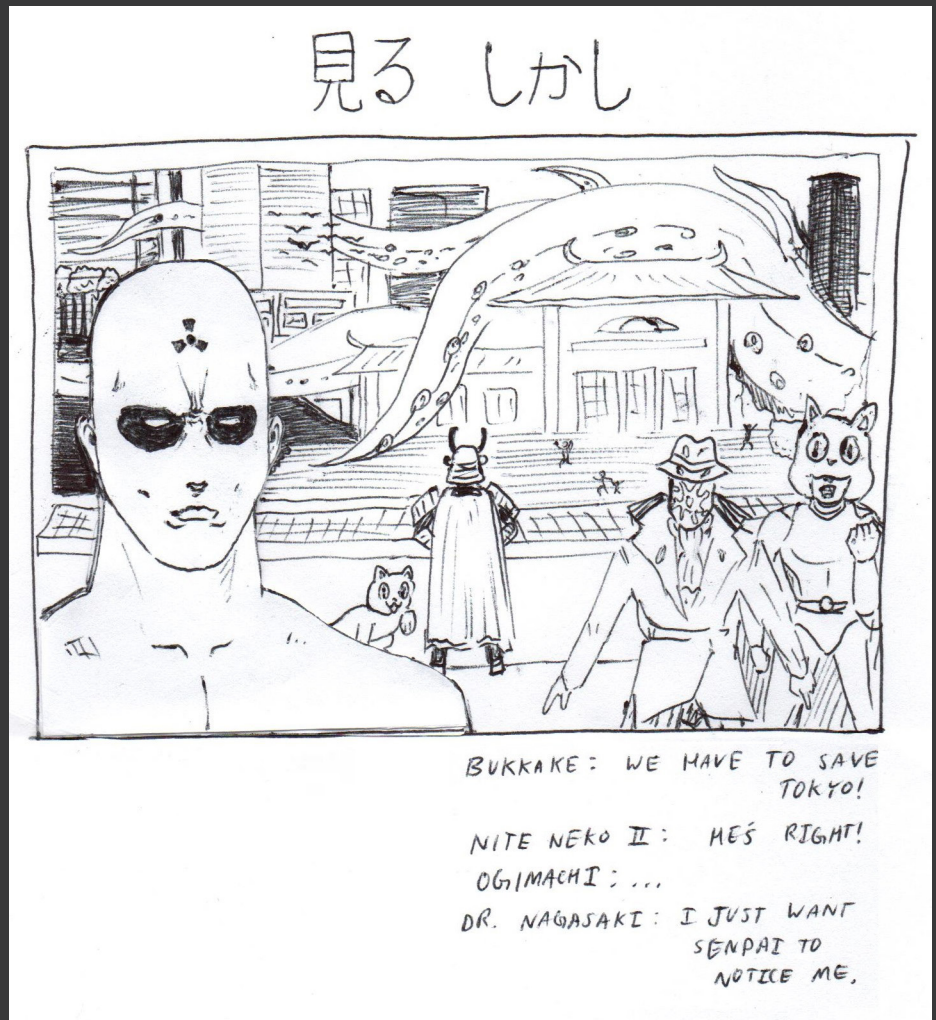 見る しかし
BUKKAKE: WE HAVE TO SAVE
TOKYO!
NITE NEKO II: HE'S RIGHT!
OGIMACHI: ...
DR. NAGASAKI: I JUST WANT
SENPAI TO
NOTICE ME.